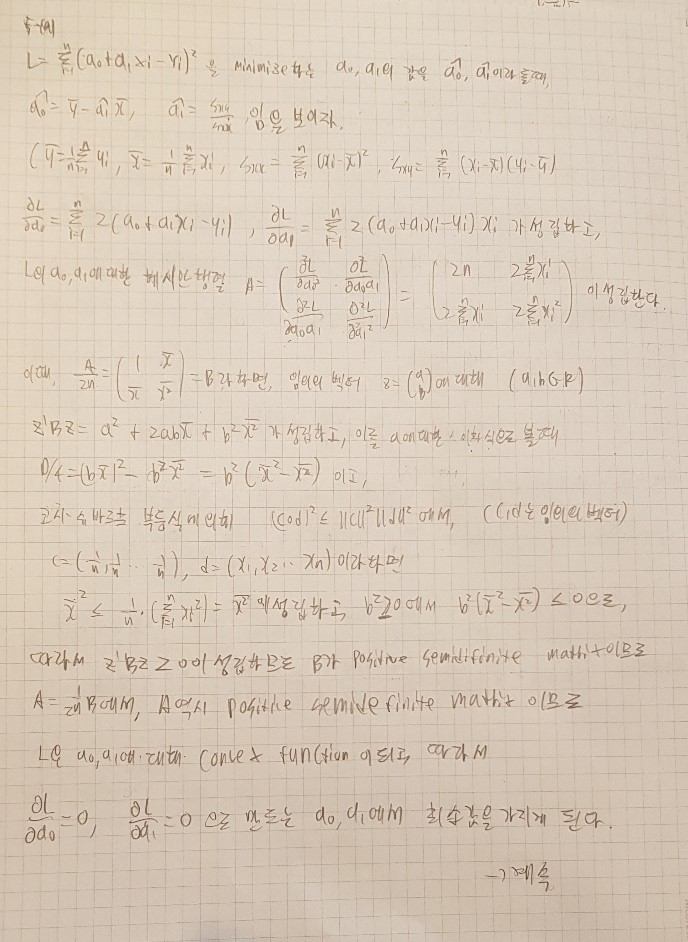 5-(a)
L = \sum_{i=1}^{n} (a_0+a_1x_i-y_i)^2 을 minimize하는 a_0, a_1의 값을 \hat{a_0}, \hat{a_1}이라 할때,
\hat{a_0} = \bar{y} - \hat{a_1}\bar{x}, \hat{a_1} = \frac{S_{xy}}{S_{xx}} 임을 보이자.
(\bar{y} = \frac{1}{n}\sum_{i=1}^{n} y_i, \bar{x} = \frac{1}{n}\sum_{i=1}^{n} x_i, S_{xx} = \sum_{i=1}^{n} (x_i-\bar{x})^2, S_{xy} = \sum_{i=1}^{n} (x_i-\bar{x})(y_i-\bar{y})
\frac{∂L}{∂a_0} = \sum_{i=1}^{n} 2(a_0+a_1x_i-y_i), \frac{∂L}{∂a_1} = \sum_{i=1}^{n} 2(a_0+a_1x_i-y_i)x_i 가 성립하고,
L의 a_0, a_1에 대한 헤시안 행렬 A = \begin{pmatrix} \frac{∂^2L}{∂a_0^2} & \frac{∂^2L}{∂a_0a_1} \\ \frac{∂^2L}{∂a_0a_1} & \frac{∂^2L}{∂a_1^2} \end{pmatrix} = \begin{pmatrix} 2n & 2\sum_{i=1}^{n} x_i \\ 2\sum_{i=1}^{n} x_i & 2\sum_{i=1}^{n} x_i^2 \end{pmatrix} 이 성립한다.
이때, \frac{A}{2n} = \begin{pmatrix} 1 & \bar{x} \\ \bar{x} & \bar{x^2} \end{pmatrix} = B라 하면, 임의의 벡터 z = \binom{a}{b}에 대해 (a,b∈R)
z'Bz = a^2 + 2ab\bar{x} + b^2\bar{x^2} 가 성립하고, 이를 a에 대한 이차식으로 볼때
D/4 = (b\bar{x})^2 - b^2\bar{x^2} = b^2(\bar{x}^2-\bar{x^2}) 이고,
코시-슈바르츠 부등식에 의해 (c∘d)^2 ≤ ||c||^2||d||^2 에서, (c,d는 임의의 벡터)
c = (\frac{1}{n}, \frac{1}{n} ... \frac{1}{n}), d = (x_1, x_2, ... x_n) 이라 하면
\bar{x}^2 ≤ \frac{1}{n}·(\sum_{i=1}^{n} x_i^2) = \bar{x^2} 이 성립하고, b^2≥0에서 b^2(\bar{x}^2-\bar{x^2}) ≤ 0으로,
따라서 z'Bz ≥ 0이 성립하므로 B가 positive semidifinite matrix이므로
A = \frac{1}{2n}B에서, A역시 positive semidefinite matrix 이므로
L은 a_0, a_1에 대해 convex function이 되고, 따라서
\frac{∂L}{∂a_0} = 0, \frac{∂L}{∂a_1} = 0 으로 만드는 a_0, a_1에서 최솟값을 가지게 된다.
→계속